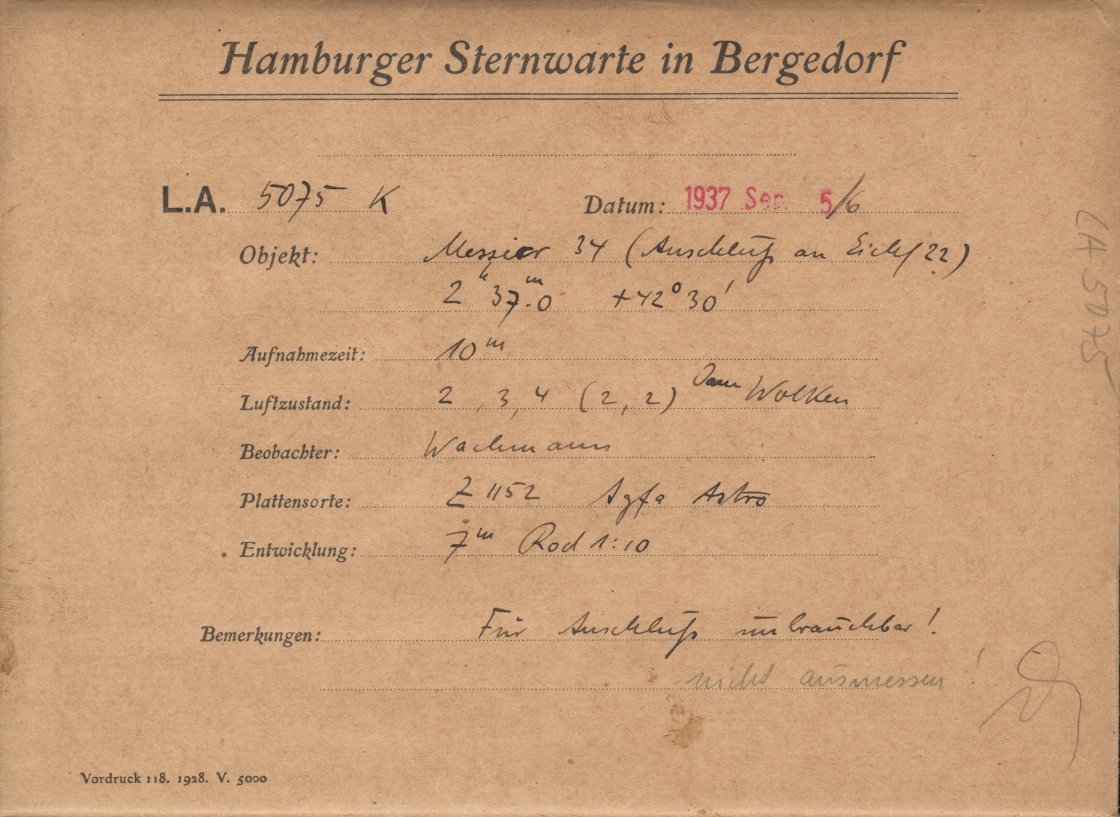 Hamburger Sternwarte in Bergedorf
L.A. 5075 K Datum: 1937 Sep. 5/6
Objekt: Messier 34 (Anschluß an Eichf 22)
2ʰ 37ᵐ.0 +42° 30'
Aufnahmezeit: 10ᵐ
Luftzustand: 2, 3, 4 (2, 2) Wolken
Beobachter: Wachmann
Plattensorte: Z 1152 Agfa Astro
Entwicklung: 7ᵐ Rod 1:10
Bemerkungen: Für Anschluß unbrauchbar!
nicht ausmessen!
Vordruck 118. 1928. V. 5000
LA 5075